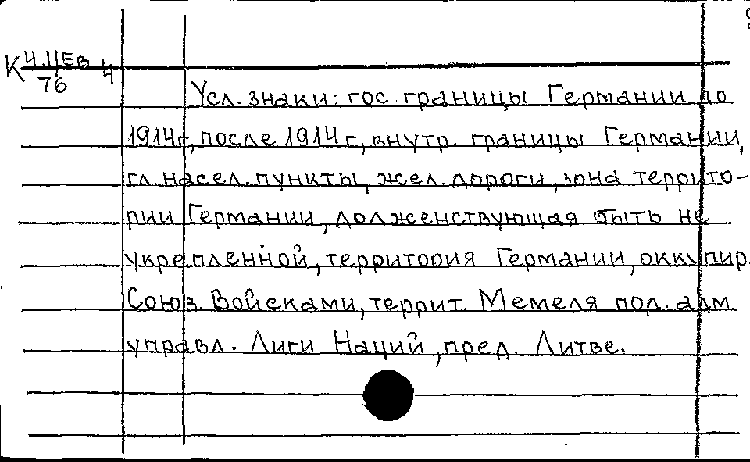 К Ч.ЦЕВ 4
76
Усл. знаки: гос. границы Германии до
1914г., после 1914 г., внутр. границы Германии,
гл. насел. пункты, жел. дороги, зона террито-
рии Германии, долженствующая быть не
укрепленной, территория Германии, оккупир.
Союз. Войсками, террит. Мемеля под. адм.
управл. Лиги Наций, пред. Литве.